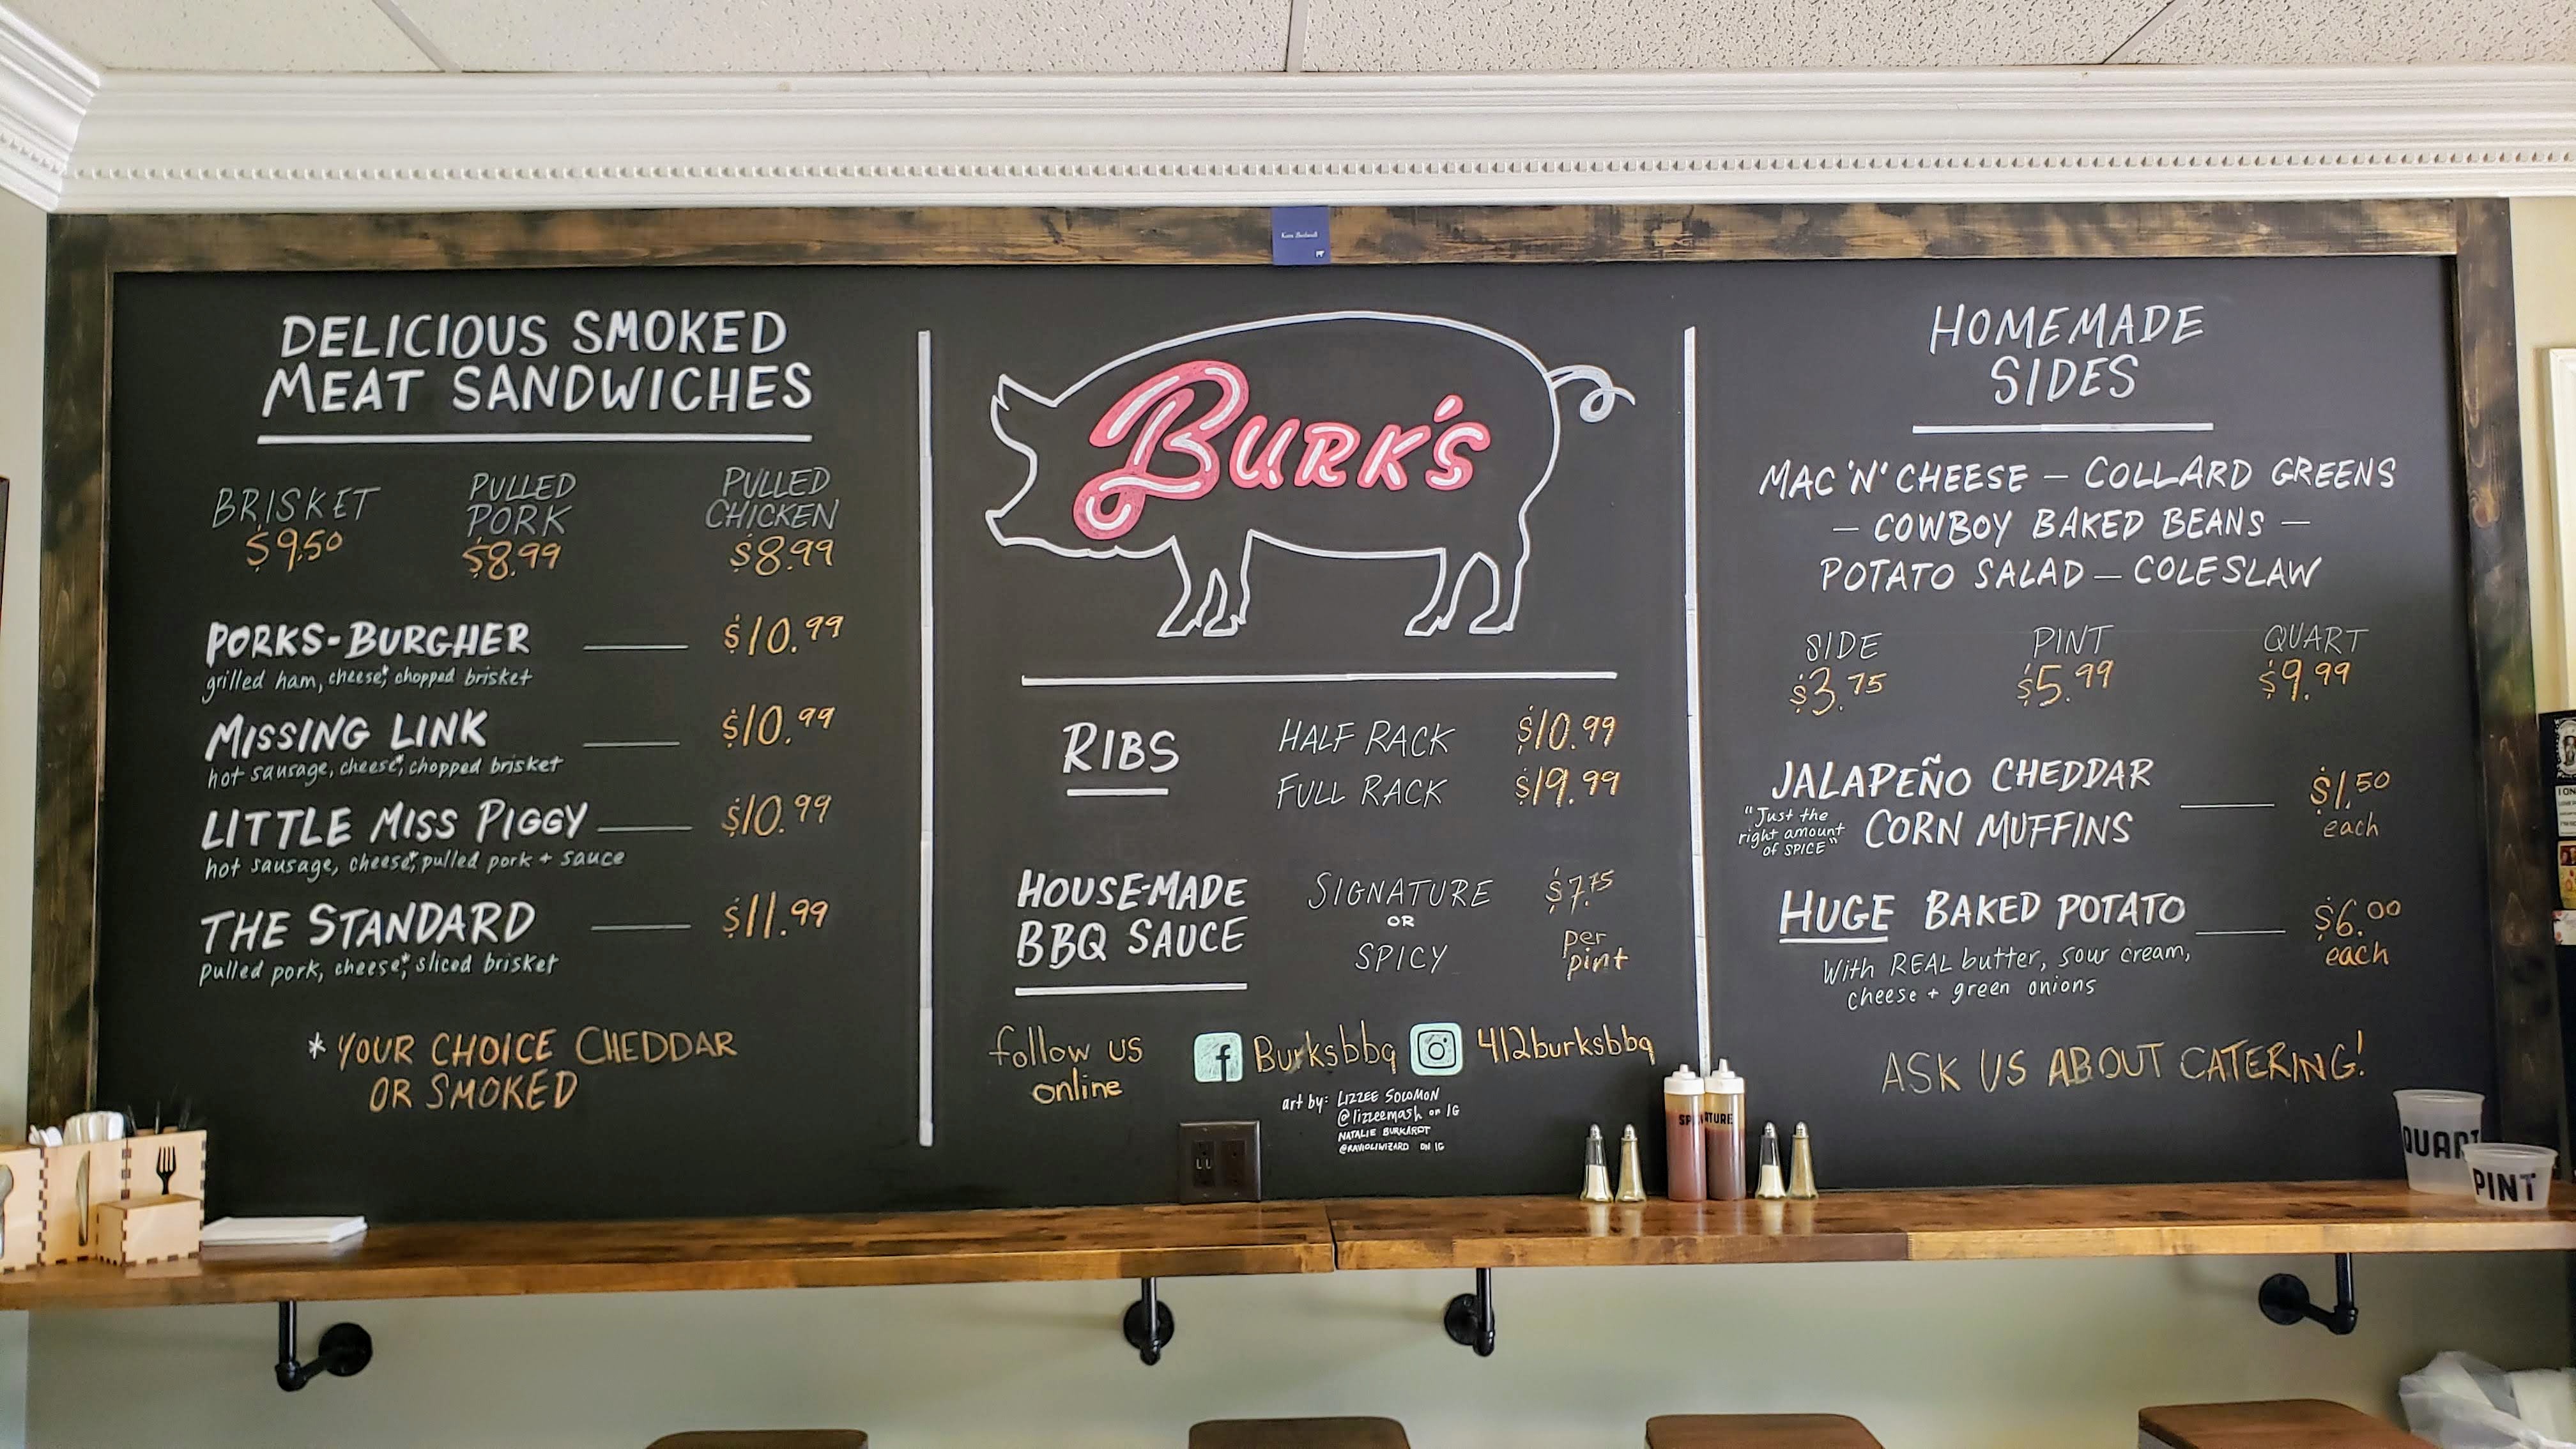 DELICIOUS SMOKED
MEAT SANDWICHES
BRISKET
$9.50
PULLED
PORK
$8.99
PULLED
CHICKEN
$8.99
PORKS-BURGHER $10.99
grilled ham, cheese*, chopped brisket
MISSING LINK $10.99
hot sausage, cheese*, chopped brisket
LITTLE MISS PIGGY $10.99
hot sausage, cheese*, pulled pork + sauce
THE STANDARD $11.99
pulled pork, cheese*, sliced brisket
* YOUR CHOICE CHEDDAR
OR SMOKED
BURK'S
RIBS
HALF RACK $10.99
FULL RACK $19.99
HOUSE-MADE
BBQ SAUCE
SIGNATURE
OR
SPICY
$7.75
per
pint
follow us
online
f Burksbbq 412burksbbq
art by: LIZZEE SOLOMON
@lizzeemash on IG
NATALIE BURKARDT
@RAVIOLIWIZARD ON IG
HOMEMADE
SIDES
MAC 'N' CHEESE — COLLARD GREENS
— COWBOY BAKED BEANS —
POTATO SALAD — COLESLAW
SIDE
$3.75
PINT
$5.99
QUART
$9.99
JALAPEÑO CHEDDAR
CORN MUFFINS
"Just the
right amount
of SPICE"
$1.50
each
HUGE BAKED POTATO $6.00
each
With REAL butter, sour cream,
cheese + green onions
ASK US ABOUT CATERING!
QUART
PINT